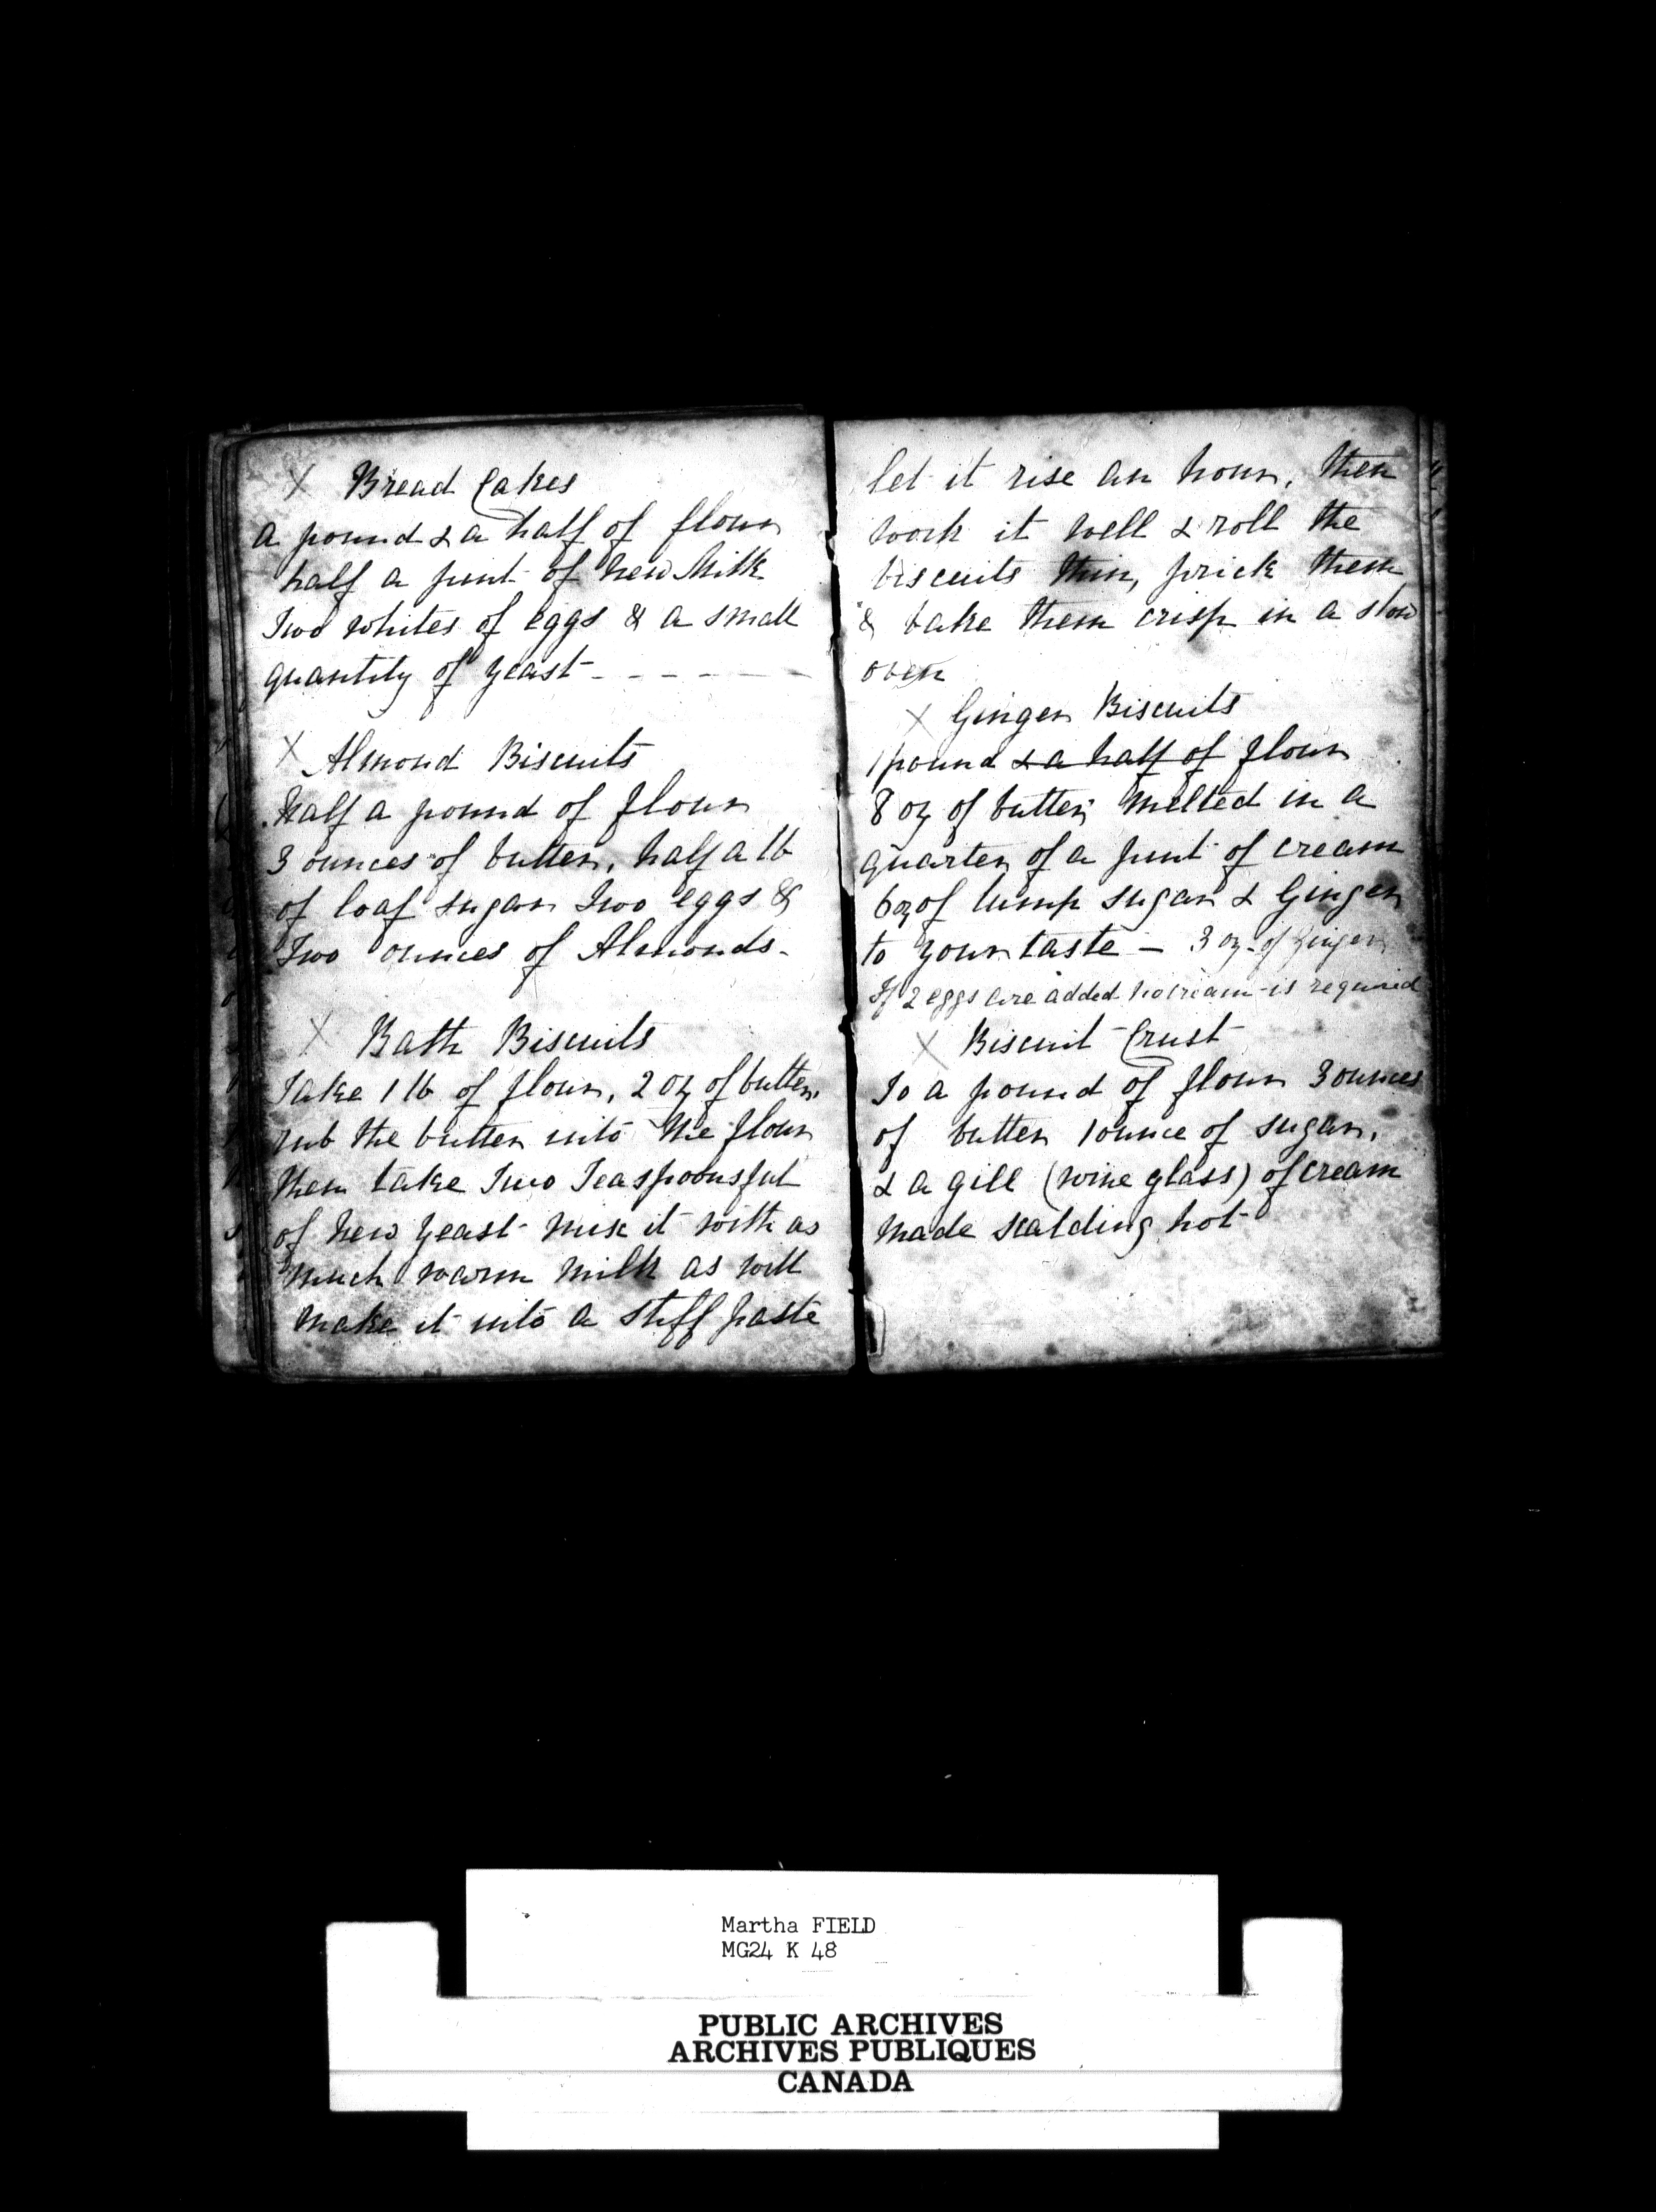 X Bread Cakes
a pound & a half of flour
half a pint of new Milk
Two whites of eggs & a small
quantity of yeast - - - - -
X Almond Biscuits
Half a pound of flour
3 ounces of butter, half a lb
of loaf sugar Two eggs &
Two ounces of Almonds.
X Bath Biscuits
Take 1 lb of flour, 2 oz of butter,
rub the butter into the flour
then take Two Teaspoonsful
of new yeast mix it with as
much warm milk as will
make it into a stiff paste
let it rise an hour, then
work it well & roll the
biscuits thin, prick them
& bake them crisp in a slow
oven
X Ginger Biscuits
1 pound & a half of flour
8 oz of butter melted in a
quarter of a pint of cream
6 oz of lump sugar & Ginger
to your taste — 3 oz. of ginger
If 2 eggs are added no cream is required
X Biscuit Crust
To a pound of flour 3 ounces
of butter 1 ounce of sugar,
& a gill (wine glass) of cream
made scalding hot
Martha FIELD
MG24 K 48
PUBLIC ARCHIVES
ARCHIVES PUBLIQUES
CANADA